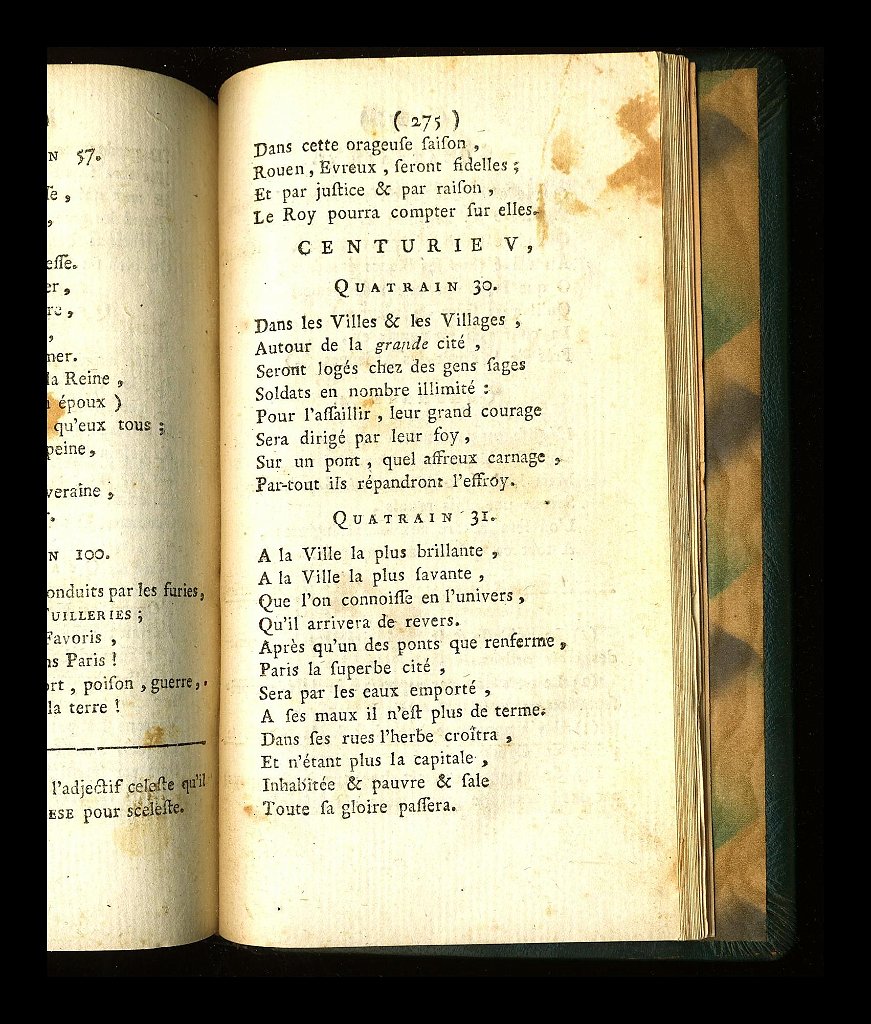 N 57.
ſe ,
,
eſſe.
er ,
re ,
,
ner.
la Reine ,
époux )
qu'eux tous ;
peine ,
veraine ,
N 100.
onduits par les furies,
UILLERIES ;
Favoris ,
ns Paris !
ort , poiſon , guerre,
la terre !
l'adjectif celeſte qu'il
ESE pour sceleſte.
( 275 )
Dans cette orageuſe ſaiſon ,
Rouen , Evreux , ſeront fidelles ;
Et par juſtice & par raiſon ,
Le Roy pourra compter ſur elles.
CENTURIE V,
QUATRAIN 30.
Dans les Villes & les Villages ,
Autour de la grande cité ,
Seront logés chez des gens ſages
Soldats en nombre illimité :
Pour l'aſſaillir , leur grand courage
Sera dirigé par leur foy ,
Sur un pont , quel affreux carnage ,
Par-tout ils répandront l'effroy.
QUATRAIN 31.
A la Ville la plus brillante ,
A la Ville la plus ſavante ,
Que l'on connoiſſe en l'univers ,
Qu'il arrivera de revers.
Après qu'un des ponts que renferme ,
Paris la ſuperbe cité ,
Sera par les eaux emporté ,
A ſes maux il n'eſt plus de terme.
Dans ſes rues l'herbe croîtra ,
Et n'étant plus la capitale ,
Inhabitée & pauvre & ſale
Toute ſa gloire paſſera.